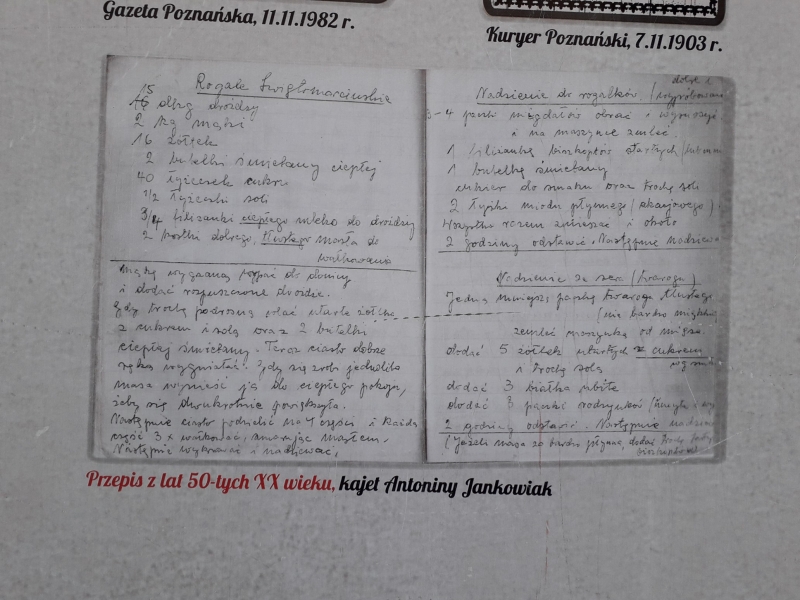 Gazeta Poznańska, 11.11.1982 r.
Kuryer Poznański, 7.11.1903 r.
Rogale Świętomarcińskie
15 dkg drożdży
2 kg mąki
16 żółtek
2 butelki śmietany ciepłej
40 łyżeczek cukru
1/2 łyżeczki soli
3/4 filiżanki ciepłego mleka do drożdży
2 kostki dobrego, tłustego masła do
wałkowania
Mąkę wygrzaną wsypać do donicy
i dodać rozpuszczone drożdże.
Gdy trochę podrosną wlać utarte żółtka
z cukrem i solą oraz 2 butelki
ciepłej śmietany. Teraz ciasto dobrze
ręką wygniatać. Gdy się zrobi jednolita
masa wynieść ją do ciepłego pokoju,
żeby się dwukrotnie powiększyła.
Następnie ciasto podzielić na 4 części i każdą
część 3 x wałkować, smarując masłem.
Następnie wykrawać i nadziewać.
dobre
Nadzienie do rogalków. (wypróbowane
3-4 paczki migdałów obrać i wysuszyć
i na maszynce zemleć.
1 filiżankę biszkoptów startych
1 butelkę śmietany
cukier do smaku oraz trochę soli
2 łyżki miodu płynnego (akacjowego)
Wszystko razem zmieszać i około
2 godziny odstawić. Następnie nadziewać
Nadzienie z sera (twarogu)
Jedną mniejszą paczkę twarogu tłustego
(nie bardzo miękkiego
zemleć maszynką od mięsa.
dodać 5 żółtek utartych z cukrem
i trochę solą
dodać 3 białka ubite
dodać 3 paczki rodzynków
2 godziny odstawić. Następnie nadziewać
(Jeżeli masa za bardzo płynna, dodać trochę
biszkoptów
Przepis z lat 50-tych XX wieku, kajet Antoniny Jankowiak